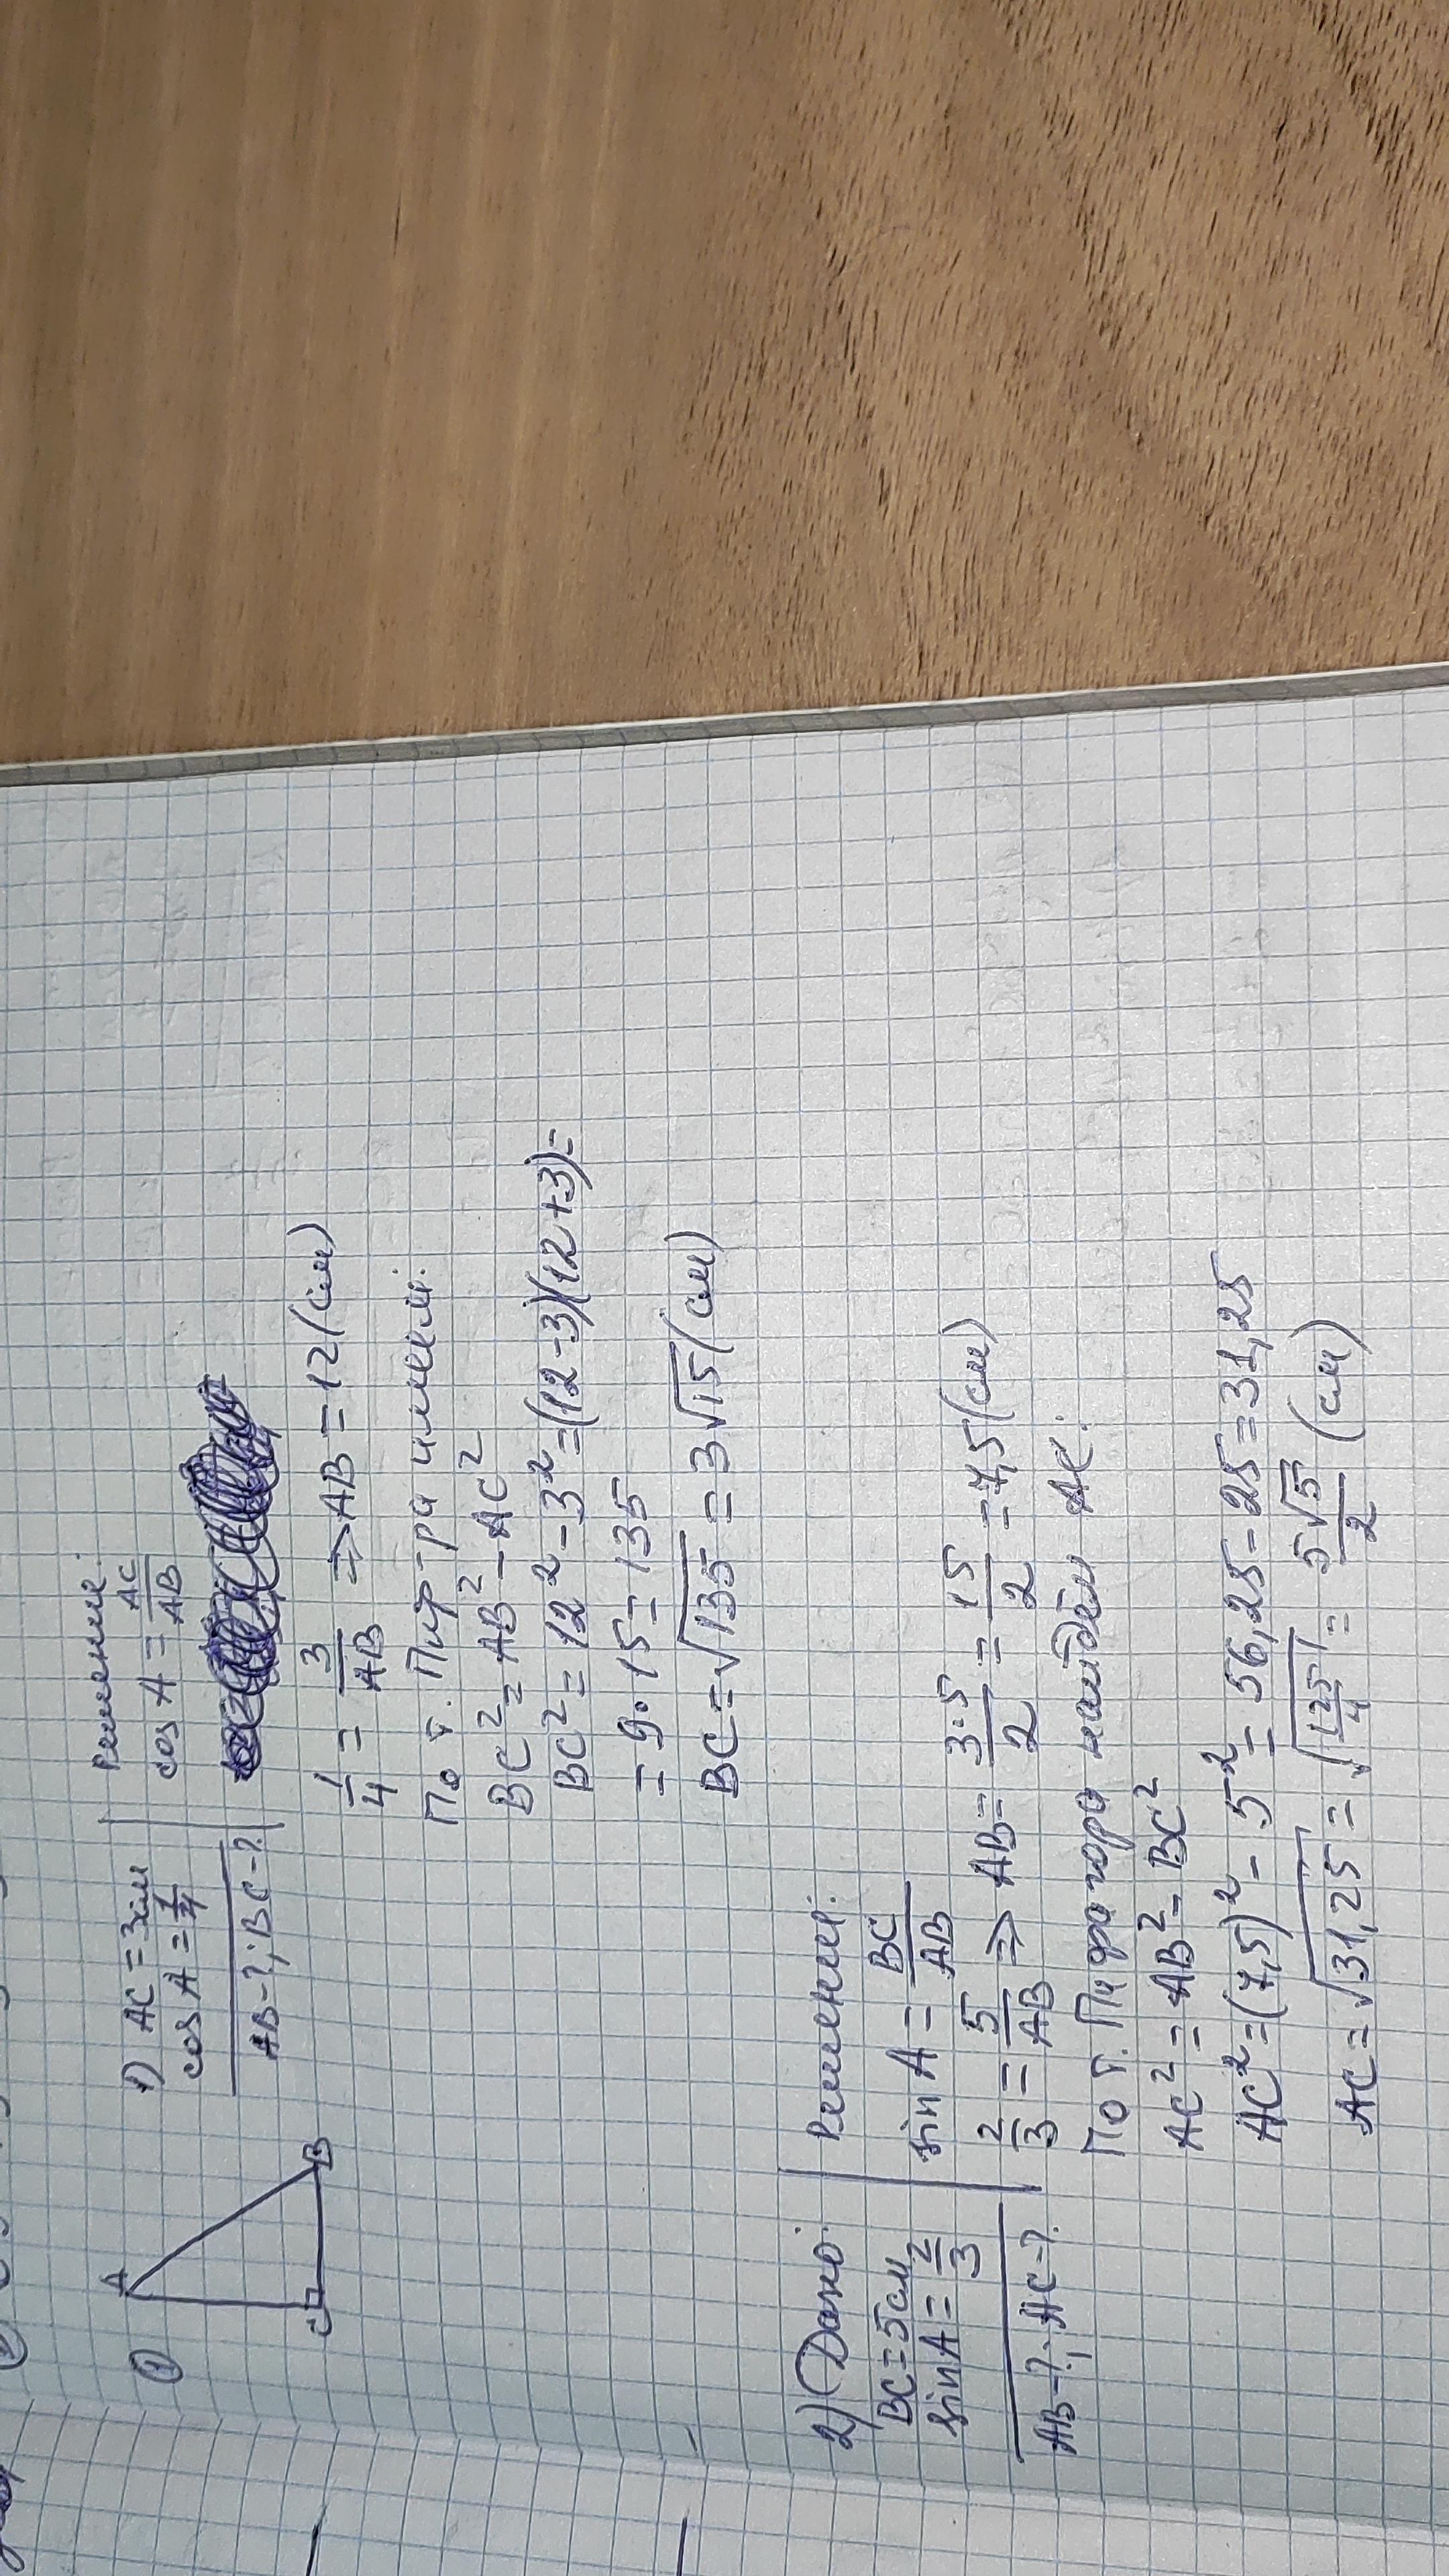 ① A
C B
1) AC = 3см
cos A = 1/4
AB - ?; BC - ?
Решение:
cos A = AC/AB
1/4 = 3/AB => AB = 12 (см)
По т. Пиф-ра имеем:
BC² = AB² - AC²
BC² = 12² - 3² = (12-3)(12+3) =
= 9·15 = 135
BC = √135 = 3√15 (см)
2) Дано:
BC = 5см
sin A = 2/3
AB - ?; AC - ?
Решение:
sin A = BC/AB
2/3 = 5/AB => AB = 3·5/2 = 15/2 = 7,5 (см)
По т. Пифагора найдём AC:
AC² = AB² - BC²
AC² = (7,5)² - 5² = 56,25 - 25 = 31,25
AC = √31,25 = √125/4 = 5√5/2 (см)